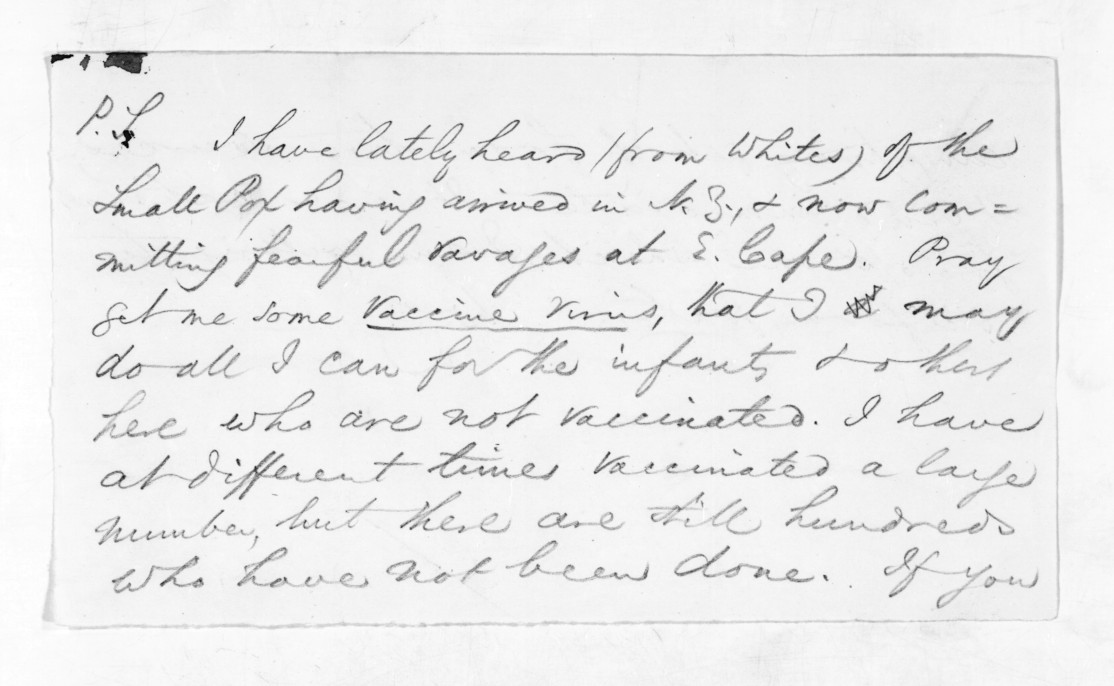 P.S. I have lately heard (from Whites) of the
Small Pox having arrived in N.Z., & now com=
mitting fearful ravages at E. Cape. Pray
get me some vaccine virus, that I may
do all I can for the infants & others
here who are not vaccinated. I have
at different times vaccinated a large
number, but there are still hundreds
who have not been done. If you